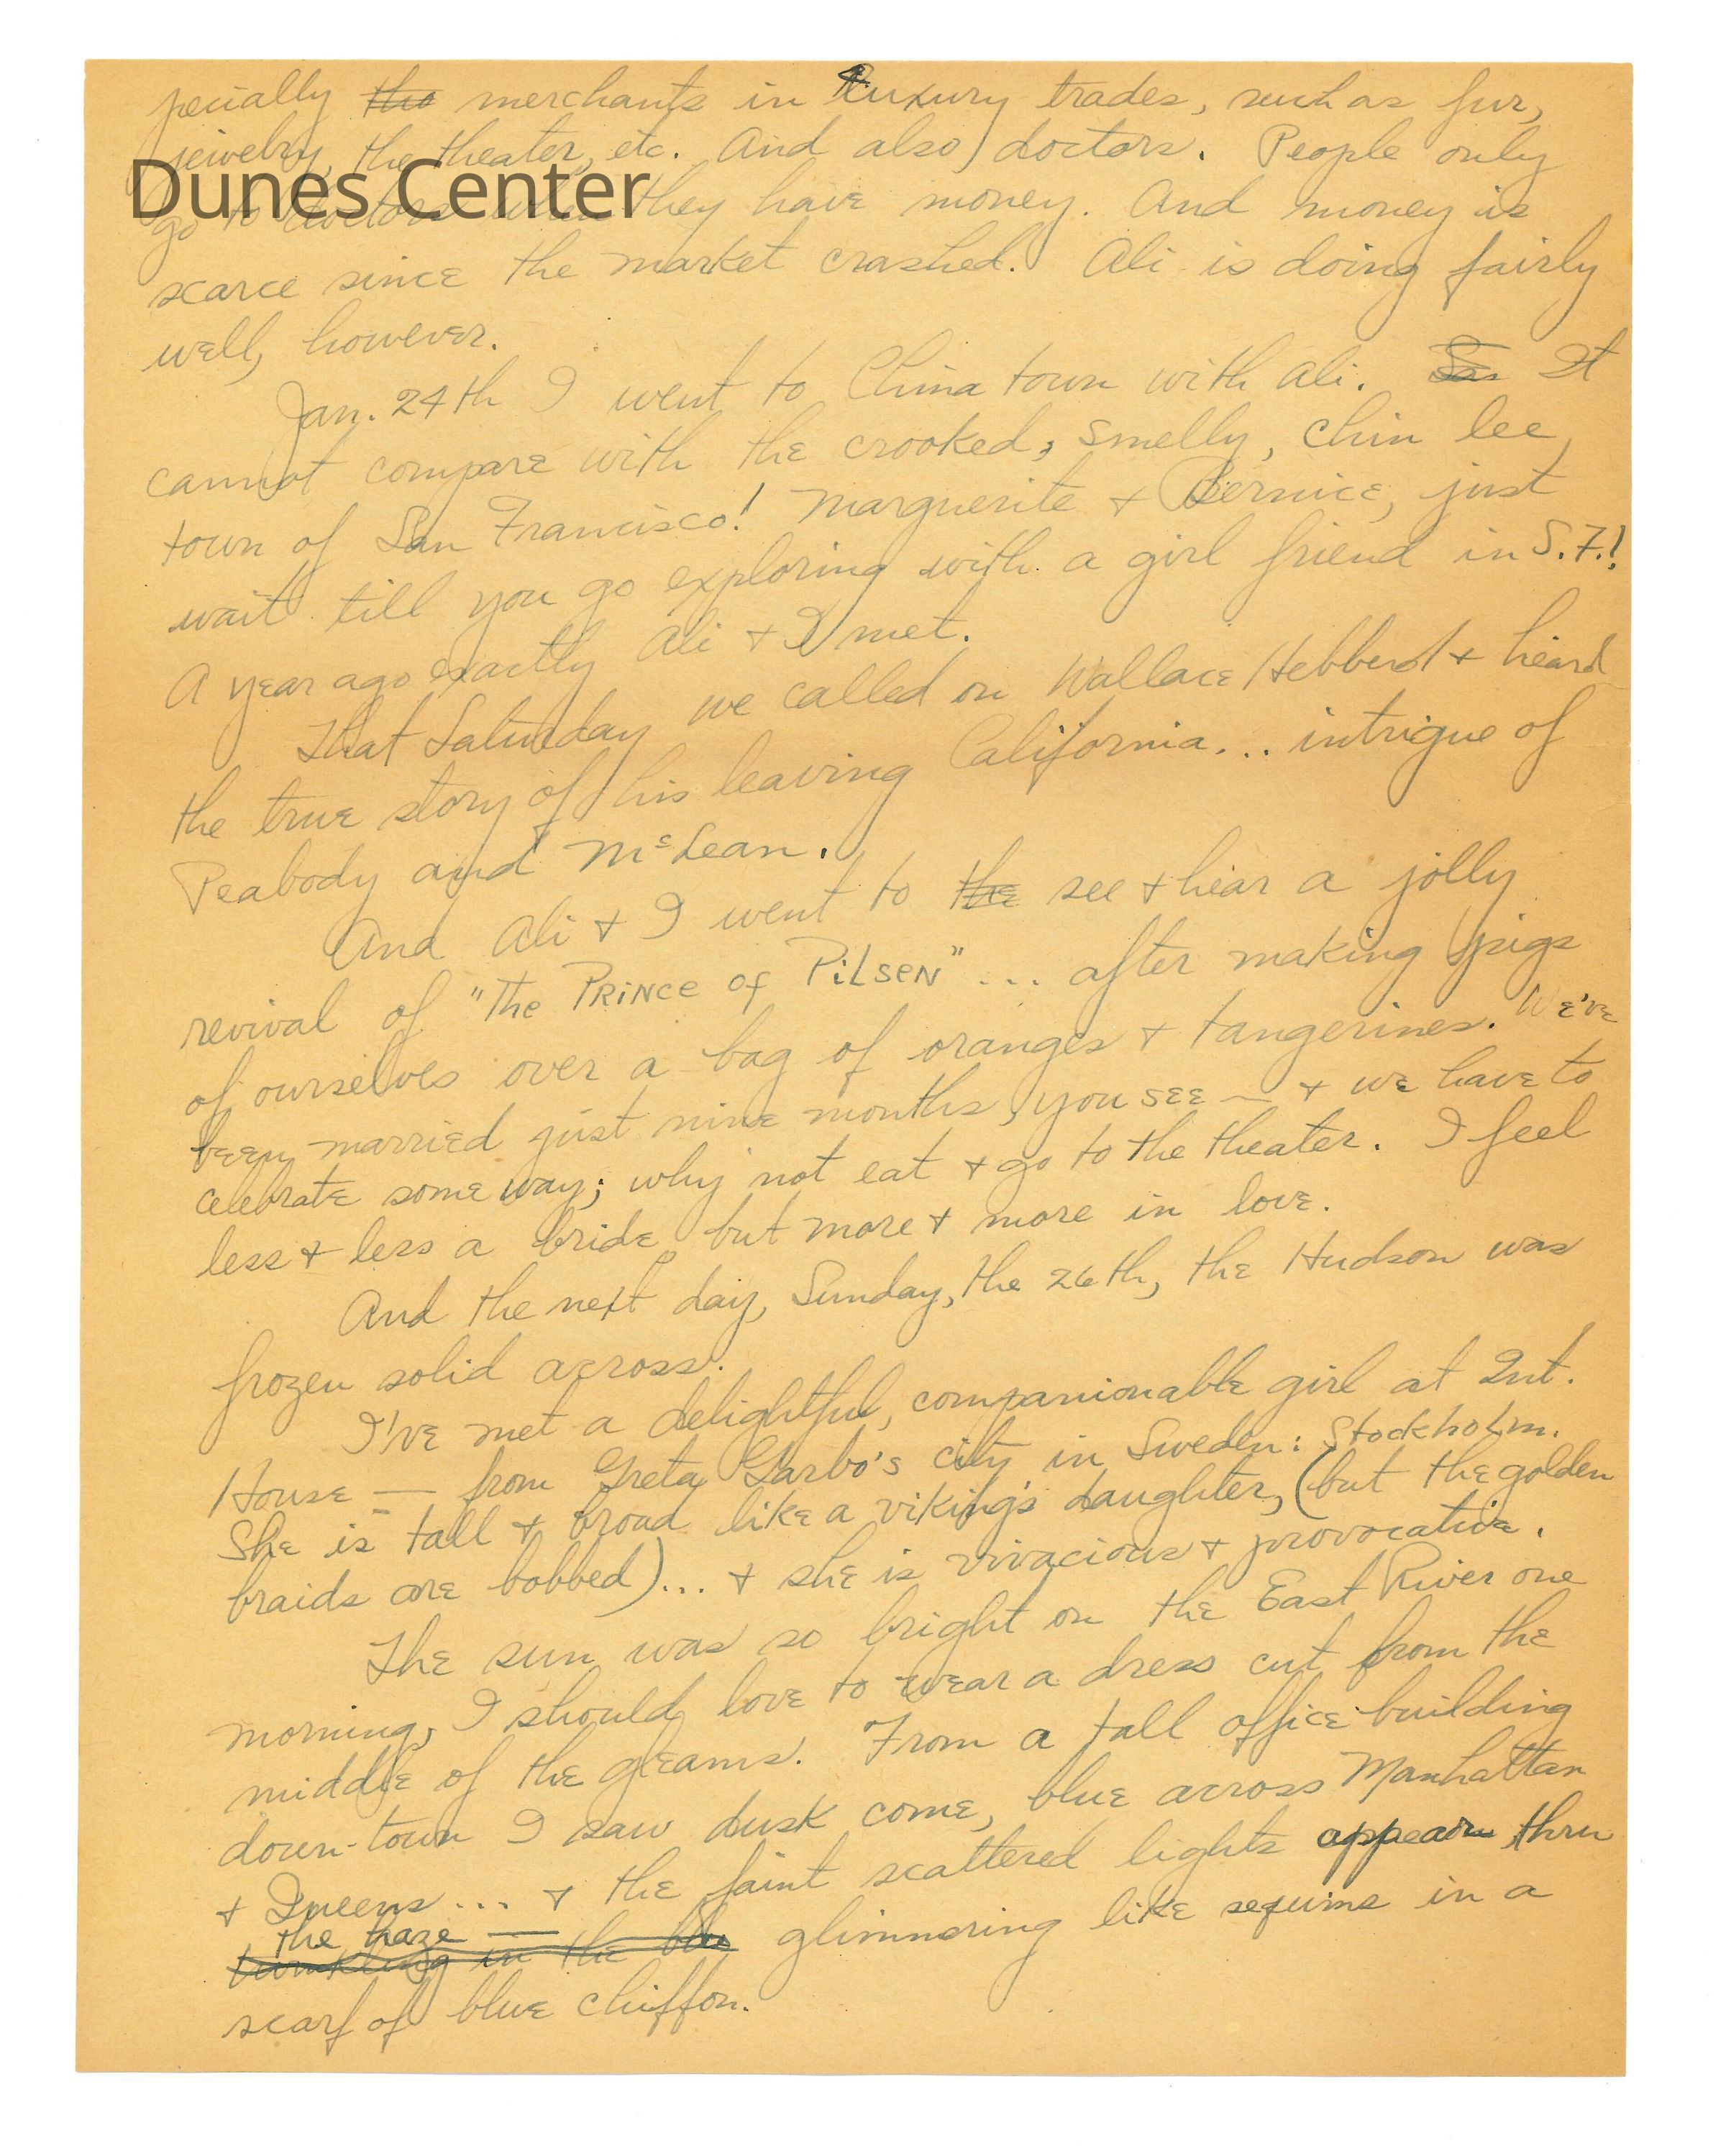 pecially the merchants in luxury trades, such as fur,
jewelry, the theater, etc. And also doctors. People only
Dunes Center
go to doctors when they have money. And money is
scarce since the market crashed. Ali is doing fairly
well, however.
Jan. 24th I went to China town with Ali. San It
cannot compare with the crooked, smelly, chin lee
town of San Francisco! Marguerite + Bernice, just
wait till you go exploring with a girl friend in S.F.!
A year ago exactly Ali + I met.
That Saturday we called on Wallace Hebberd + heard
the true story of his leaving California... intrigue of
Peabody and McLean.
And Ali + I went to the see + hear a jolly
revival of "The PRINCE of PILSEN" ... after making pigs
of ourselves over a bag of oranges + tangerines. We've
been married just nine months, you see — + we have to
celebrate some way; why not eat + go to the theater. I feel
less + less a bride but more + more in love.
And the next day, Sunday, the 26th, the Hudson was
frozen solid across.
I've met a delightful, companionable girl at Int.
House — from Greta Garbo's city in Sweden: Stockholm.
She is tall + broad like a viking's daughter, (but the golden
braids are bobbed)... + she is vivacious + provocative.
The sun was so bright on the East River one
morning, I should love to wear a dress cut from the
middle of the gleams. From a tall office building
down-town I saw dusk come, blue across Manhattan
+ Queens ... + the faint scattered lights appear thru
the haze —
twinkling in the blu glimmering like sequins in a
scarf of blue chiffon.